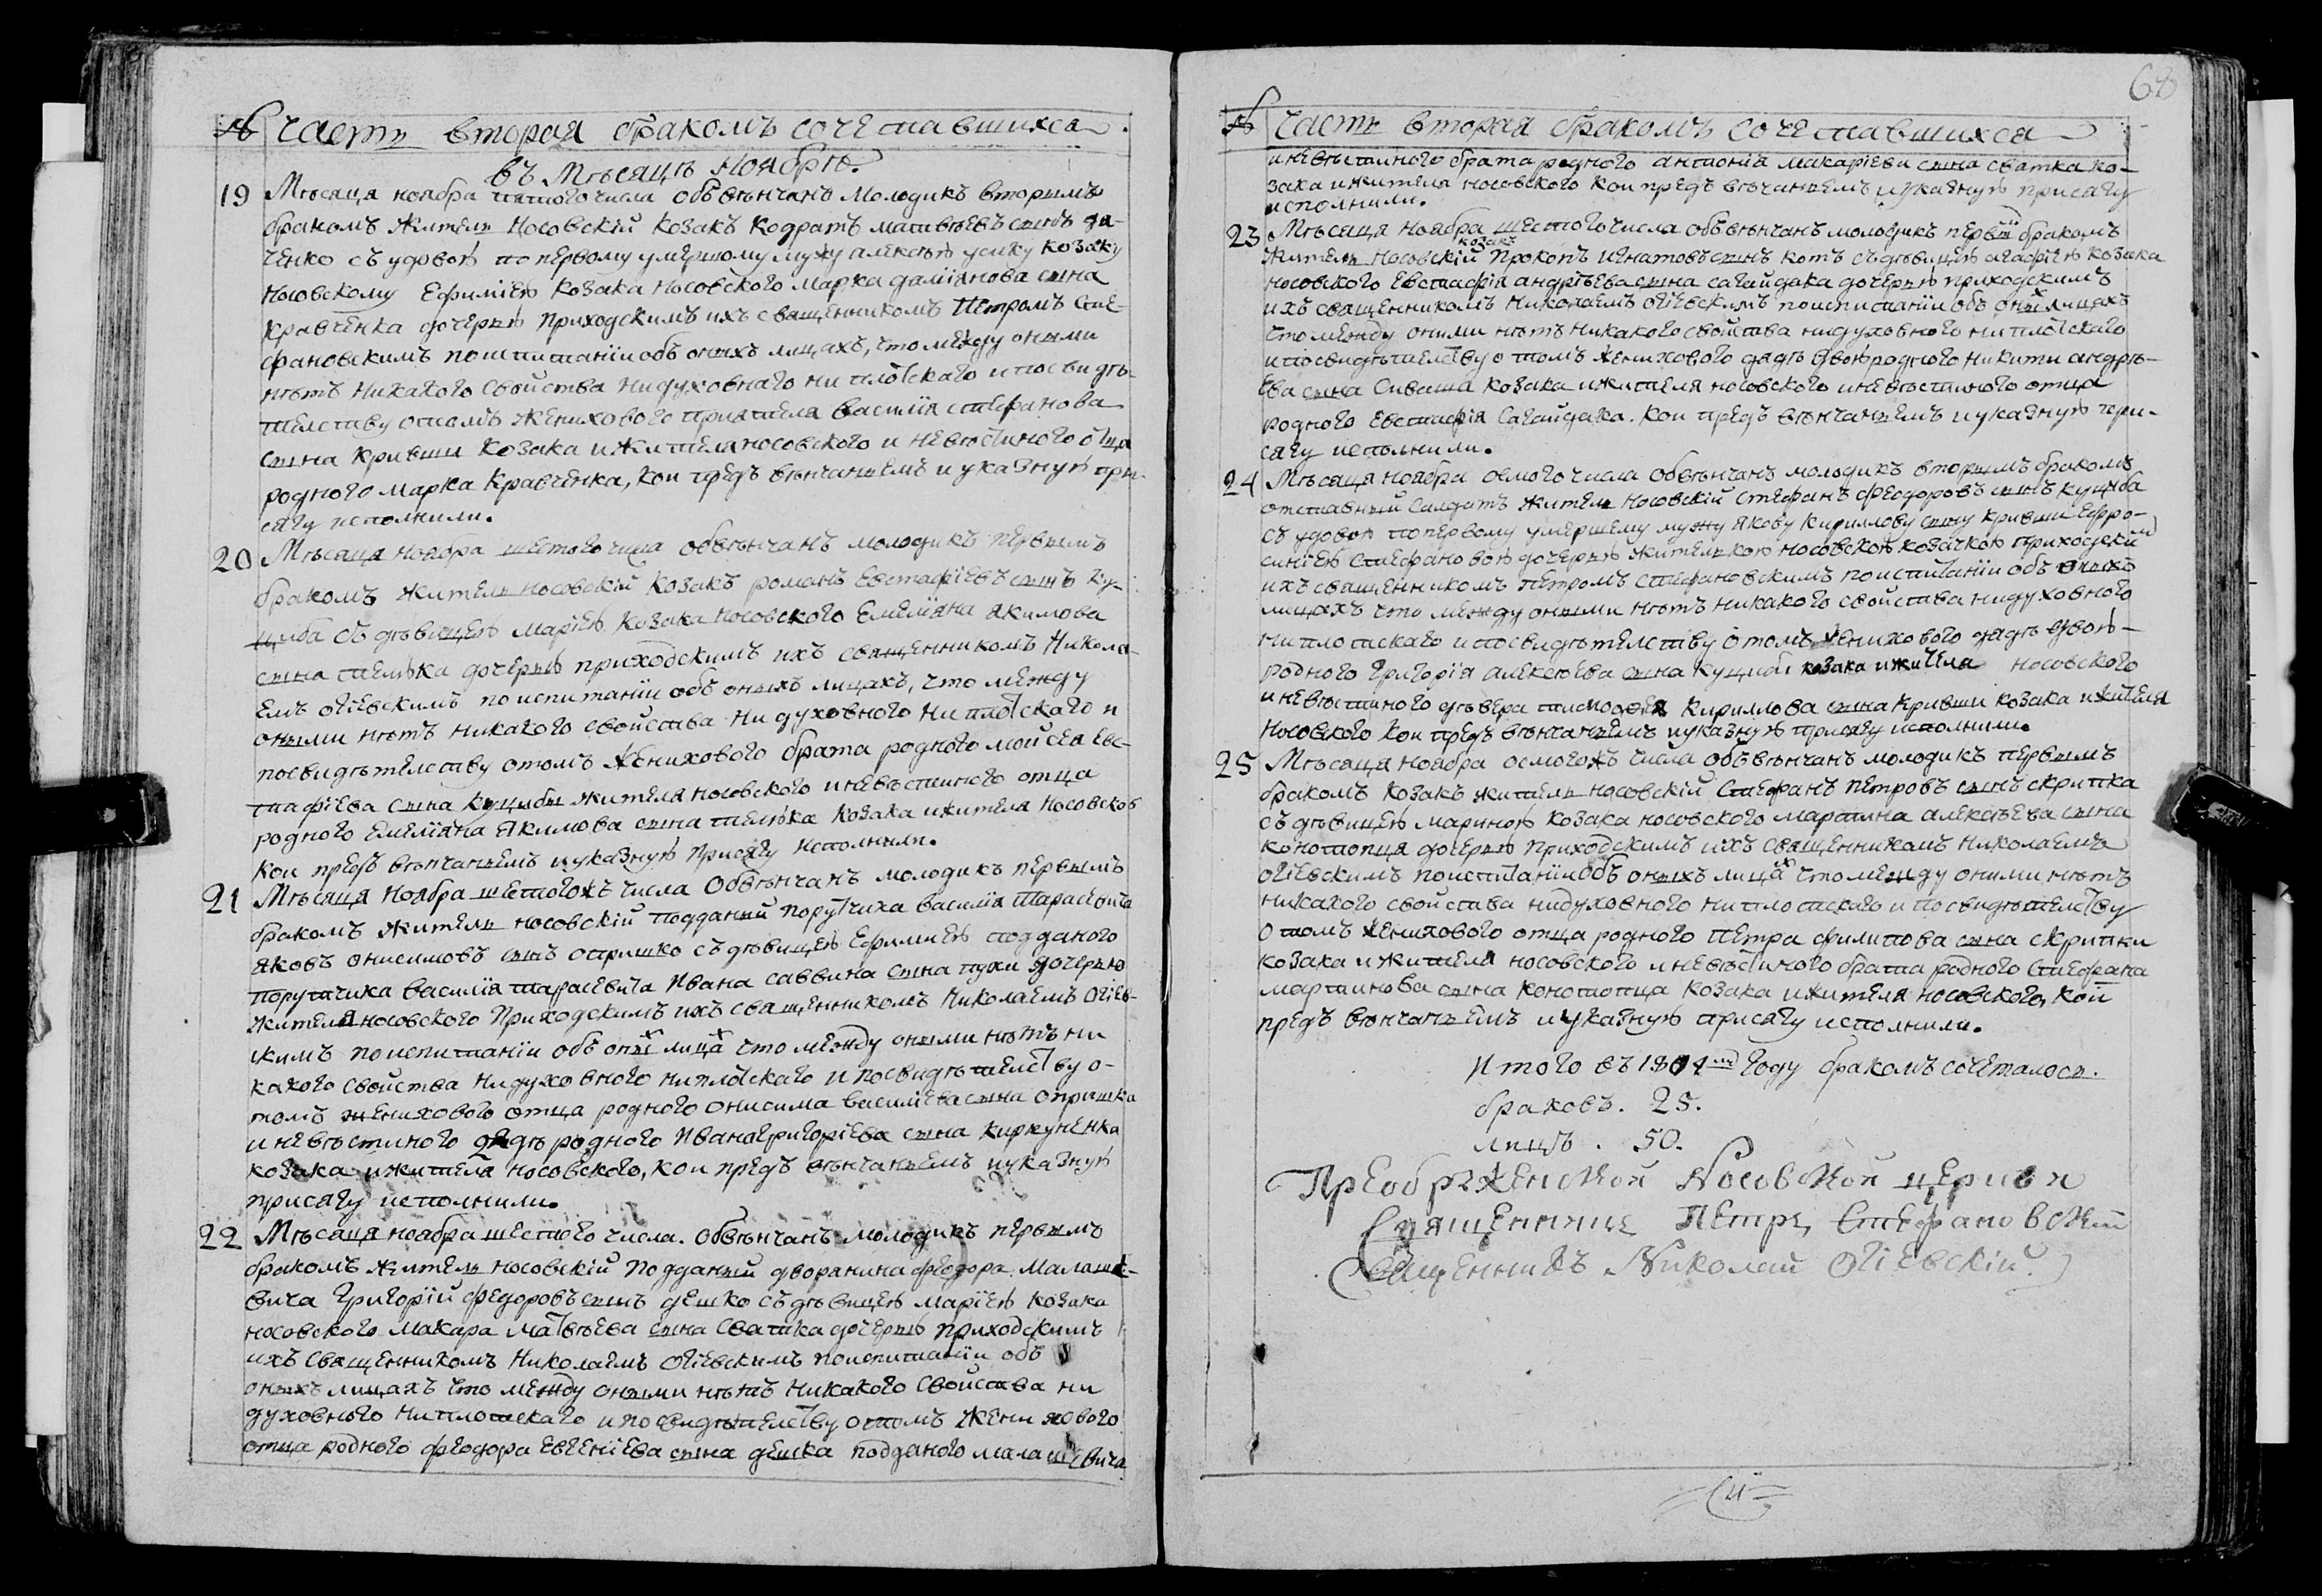 № Часть вторая бракомъ сочетавшихся.
въ Мѣсяцѣ Ноябрѣ.
19 Мѣсяця ноября пятого числа обвѣнчанъ молодикъ вторымъ
бракомъ житель Носовскій козакъ Кодратъ матвѣевъ сынъ дя-
ченко съ удовою по первому умершому мужу алексѣю усику козаку
носовскому Ефиміею козака носовского марка даміянова сына
кравченка дочерью приходскимъ ихъ священникомъ Петромъ Сте-
фановскимъ поиспитаніи объ оныхъ лицахъ, что между оными
нѣтъ никакого свойства нидуховнаго ни плотского и посвидѣ-
телству отомъ женихового приятеля василія стефанова
сына кривши козака ижителя носовского и невѣстиного отца
родного марка кравченка, кои предъ вѣнчаньемъ и указную при-
сягу исполнили.
20 Мѣсяця ноября шестого числа обвѣнчанъ молодикъ первымъ
бракомъ житель носовскій козакъ романъ Евстафіевъ сынъ ку-
цыба съ дѣвицею маріею козака носовского Емеліяна якимова
сына телѣка дочерью приходскимъ ихъ священникомъ Никола-
емъ огіевскимъ поиспитаніи объ оныхъ лицахъ, что между
оными нѣтъ никакого свойства ни духовного ни плотскаго и
посвидѣтелству отомъ женихового брата родного мойсея Евс-
тафіева сына куцыбы жителя носовского иневѣстиного отца
родного Емеліяна якимова сына телѣка козака ижителя носовског
кои предъ вѣнчаньемъ иуказную присягу исполнили.
21 Мѣсяця ноября шестогожъ числа обвѣнчанъ молодикъ первымъ
бракомъ житель носовскій подданый порутчика василія тарасевича
яковъ онисимовъ сынъ опришко съ дѣвицею Ефиміею подданого
порутчика василія тарасевича Ивана саввина сына пухи дочерью
жителя носовского приходскимъ ихъ священникомъ Николаемъ огіев-
скимъ поиспитаніи объ оныхъ лицахъ что между оными нѣтъ ни
какого свойства нидуховного ниплотскаго и посвидѣтелству о-
томъ женихового отца родного онисима василіева сына опришка
иневѣстиного дядѣ родного Ивана григоріева сына киркуненка
козака ижителя носовского, кои предъ вѣнчаньемъ иуказную
присягу исполнили.
22 Мѣсяця ноября шестого числа. обвѣнчанъ молодикъ первымъ
бракомъ житель носовскій подданый дворянина феодора Малаше-
вича григорій федоровъ сынъ дешко съ дѣвицею маріею козака
носовского макара матвѣева сына сватка дочерью приходскимъ
ихъ священникомъ Николаемъ огіевскимъ поиспитаніи объ
оныхъ лицахъ что между оными нѣтъ никакого свойства ни
духовного ниплотскаго и посвидѣтелству отомъ женихового
отца родного феодора Евгеніева сына дешка подданого малашевича
№ Часть вторая бракомъ сочетавшихся
иневѣстиного брата родного антонія макаріева сына сватка ко-
зака ижителя носовского кои предъ вѣчаньемъ иукazную присягу
исполнили.
23 Мѣсяця ноября шестого числа обвѣнчанъ молодикъ первый бракомъ
козакъ
житель носовскій прокопъ игнатовъ сынъ котъ съ дѣвицею агафіею козака
носовского Евстафія андріева сына сагайдака дочерью приходскимъ
ихъ священникомъ Николаемъ огіевскимъ поиспитаніи объ оныхъ лицахъ
что между оными нѣтъ никакого свойства нидуховного ни плотскаго
и посвидѣтелству о томъ женихового дядѣ двоюродного никити андрѣ-
ева сына сиваша козака ижителя носовского иневѣстиного отца
родного Евстафія Сагайдака. кои предъ вѣнчаньемъ иуказную при-
сягу исполнили.
24 Мѣсяця ноября осмого числа обвѣнчанъ молодикъ вторымъ бракомъ
отставный салдатъ житель носовскій стефанъ феодоровъ сынъ куцыба
съ удовою попервому умершему мужу якову кириллову сыну кривши Ефро-
синіею Стефановою дочерью жителькою носовскою козачкою приходским
ихъ священникомъ петромъ стефановскимъ поиспитаніи объ оныхъ
лицахъ что между оными нѣтъ никакого свойства нидуховного
ниплотскаго и посвидѣтелству отомъ женихового дядѣ двою-
родного григорія алексіева сына куцыби козака ижителя носовского
иневѣстиного дѣвера тимофея кириллова сына кривши козака ижителя
носовского кои предъ вѣнчаньемъ иуказную присягу исполнили.
25 Мѣсяця ноября осмогожъ числа обвѣнчанъ молодикъ первымъ
бракомъ козакъ житель носовскій Стефанъ петровъ сынъ скрипка
съ дѣвицею мариною козака носовского мартина алексѣева сына
конотопця дочерью приходскимъ ихъ священникомъ николаемъ
огіевскимъ поиспитаніи объ оныхъ лицахъ что между оними нѣтъ
никакого свойства нидуховного ниплотскаго и посвидѣтелству
о томъ женихового отца родного петра филипова сына скрипки
козака ижителя носовского иневѣстиного брата родного Стефана
мартинова сына конотопца козака ижителя носовского, кои
предъ вѣнчаньемъ иуказную присягу исполнили.
Итого въ 1804мъ году бракомъ сочеталось.
браковъ. 25.
лицъ. 50.
Преображенской Носовской церкви
Священникъ Петръ Стефановскій
Священникъ Николай Огіевскій